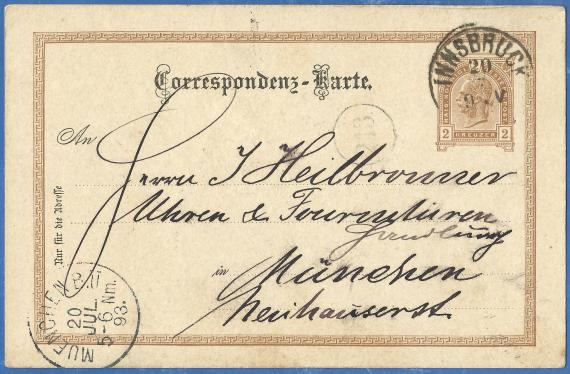 INNSBRUCK
20
Correspondenz-Karte.
2 KREUZER 2
An
Herrn J Heilbronner
Uhren & Fournituren
Handlung
in München
Neuhauserst.
Nur für die Adresse
MUENCHEN
20
JUL.
5-6 Nm.
93.